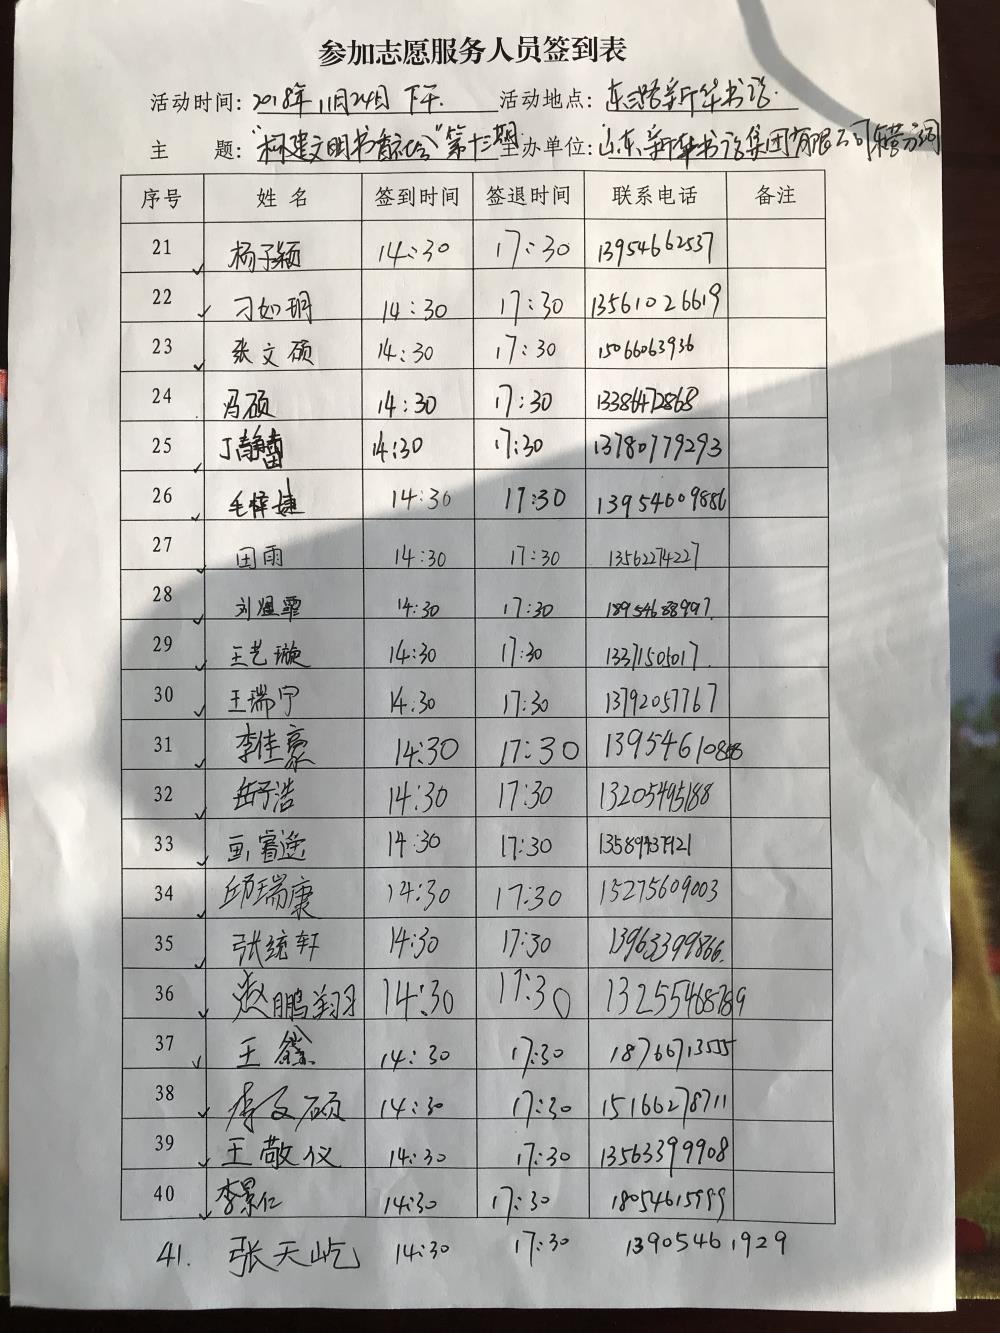 参加志愿服务人员签到表
活动时间: 2018年11月24日下午. 活动地点: 东三路新华书店.
主 题: "构建文明书香社会"第十三期 主办单位: 山东新华书店集团有限公司东营分公司
序号 姓名 签到时间 签退时间 联系电话 备注
21 杨子颖 14:30 17:30 13954662537
22 刁如玥 14:30 17:30 13561026619
23 张文硕 14:30 17:30 15066063936
24 冯硕 14:30 17:30 13386472868
25 丁静蕾 14:30 17:30 13780779293
26 毛梓婕 14:30 17:30 13954609886
27 田雨 14:30 17:30 13562274227
28 刘煜霏 14:30 17:30 18954688997
29 王艺璇 14:30 17:30 13371505017
30 王瑞宁 14:30 17:30 13792057767
31 李佳豪 14:30 17:30
32 岳子浩 14:30 17:30 13205495188
33 14:30 17:30 13589437921
34 邱瑞康 14:30 17:30 15275609003
35 张统轩 14:30 17:30 13963399866.
36 赵鹏翔 14:30 17:30 13255468789
37 王鑫 14:30 17:30 18766713555
38 李文硕 14:30 17:30 15166278711
39 王敬仪 14:30 17:30 13563399908
40 李景仁 14:30 17:30 18054615999
41. 张天屹 14:30 17:30 13905461929